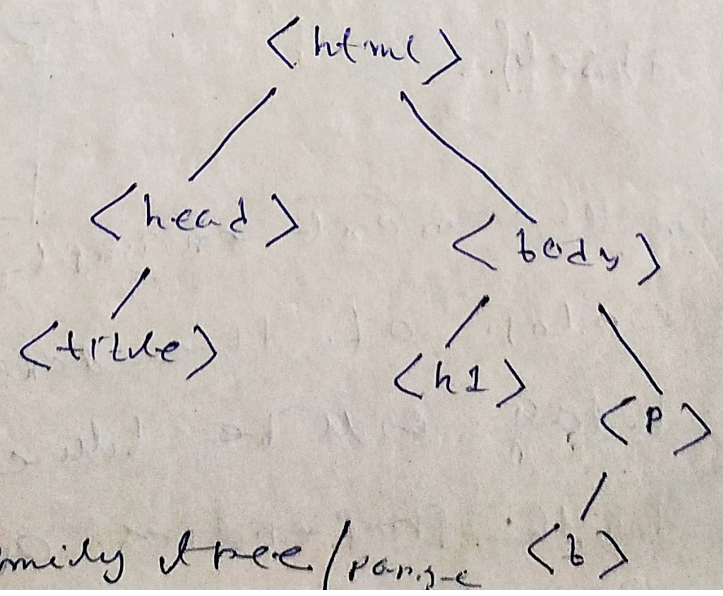 <html>
<head>
<body>
<title>
<h1>
<p>
<b>
tree/parse